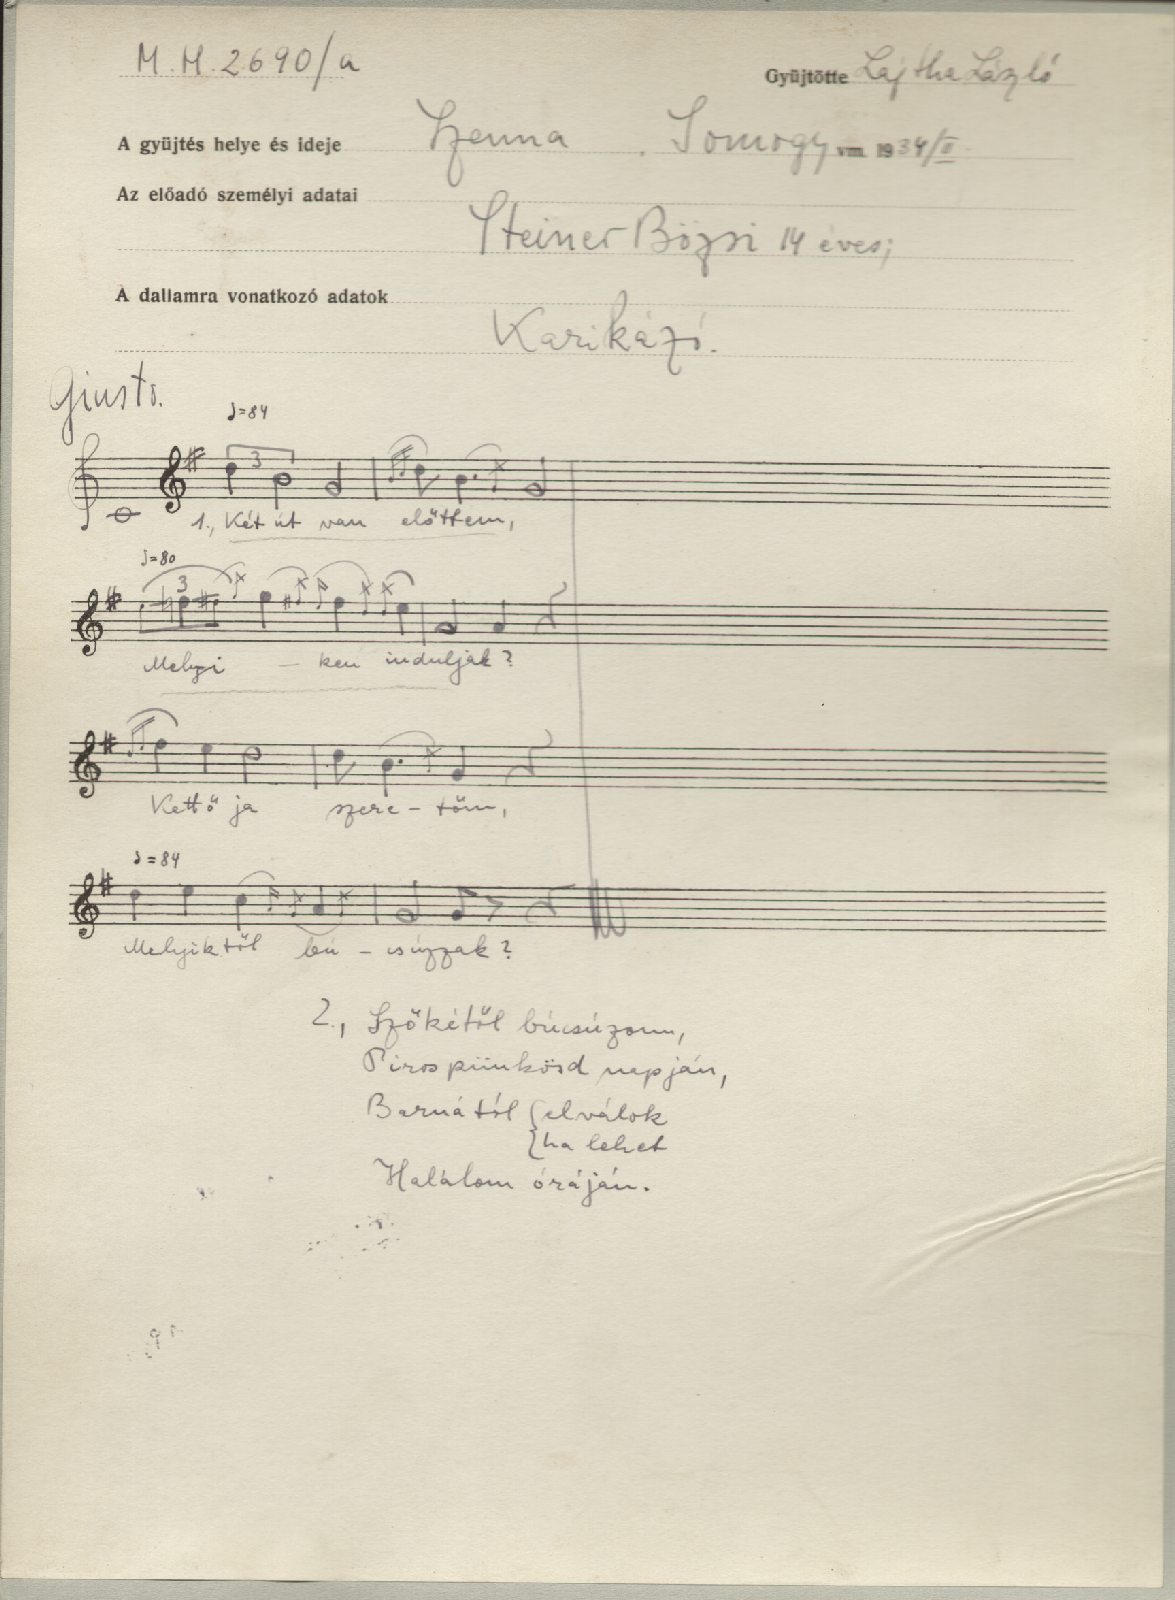 M.H. 2690/a
Gyüjtötte Lajtha László
A gyüjtés helye és ideje Szenna . Somogy vm. 1934/II.
Az előadó személyi adatai
Steiner Bözsi 14 éves;
A dallamra vonatkozó adatok
Karikázó.
Giusto.
♩=84
3
1., Két út van előttem,
♩=80
3
Melyi – ken induljak?
Kettő ja szere – tőm,
♩=84
Melyiktől bú – csúzzak?
2., Szőkétől búcsúzom,
Piros pünkösd napján,
Barnától {elválok
{ha lehet
Halálom óráján.